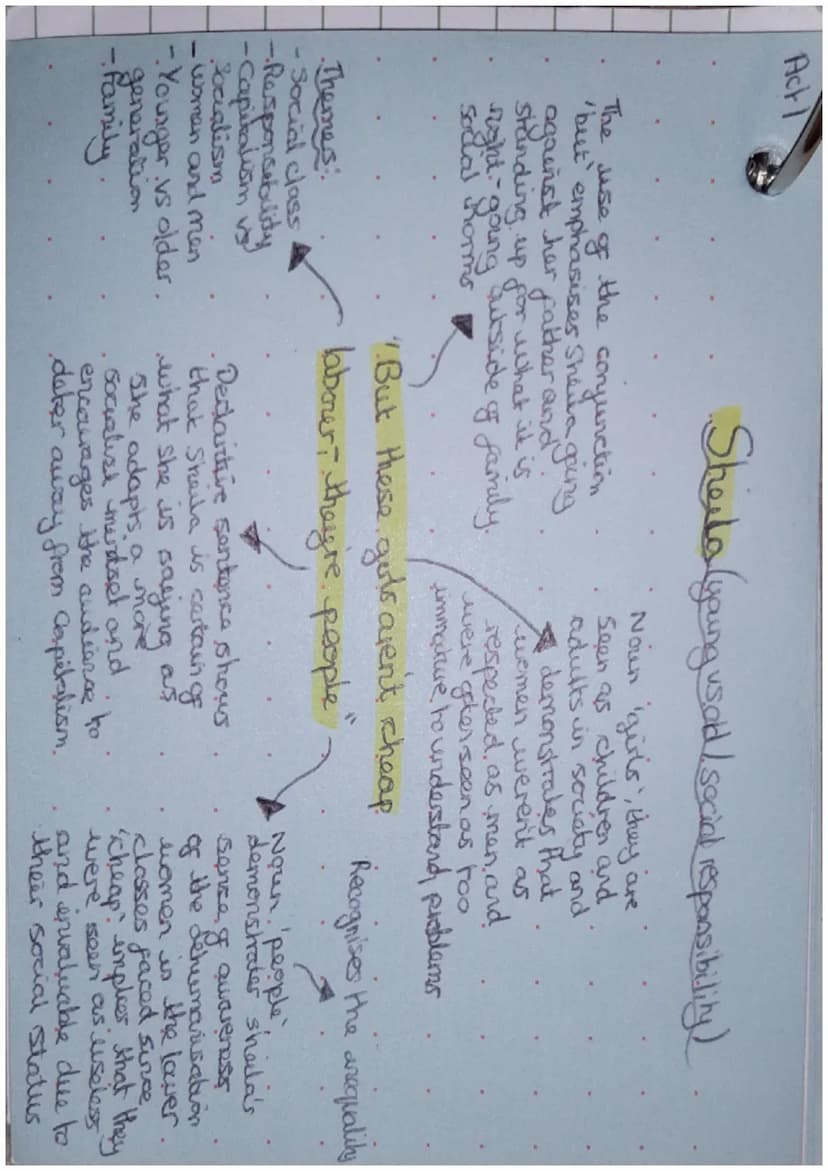 Act 1
Sheila (young vs old / social responsibility)
The use of the conjunction
'but' emphasises Sheila going
against her father and
standing up for what it is
right - going outside of family
social norms
Noun 'girls', they are
seen as children and
adults in society and
demonstrates that
women weren't as
respected as men and
were often seen as too
immature to understand problems
"But these girls aren't cheap
labour, they're people"
Themes:
- Social class
- Responsibility
- Capitalism vs
socialism
- Women and men
- Younger vs older
generation
- Family
Declaritive sentence shows
that Sheila is certain of
what she is saying as
she adapts a more
socialist mindset and
encourages the audience to
deter away from capitalism
Recognises the inequality
Noun 'people'
demonstrates sheila's
sense of awareness
of the dehumanisation
women in the lower
classes faced since
'cheap' implies that they
were seen as useless
and invaluable due to
their social status